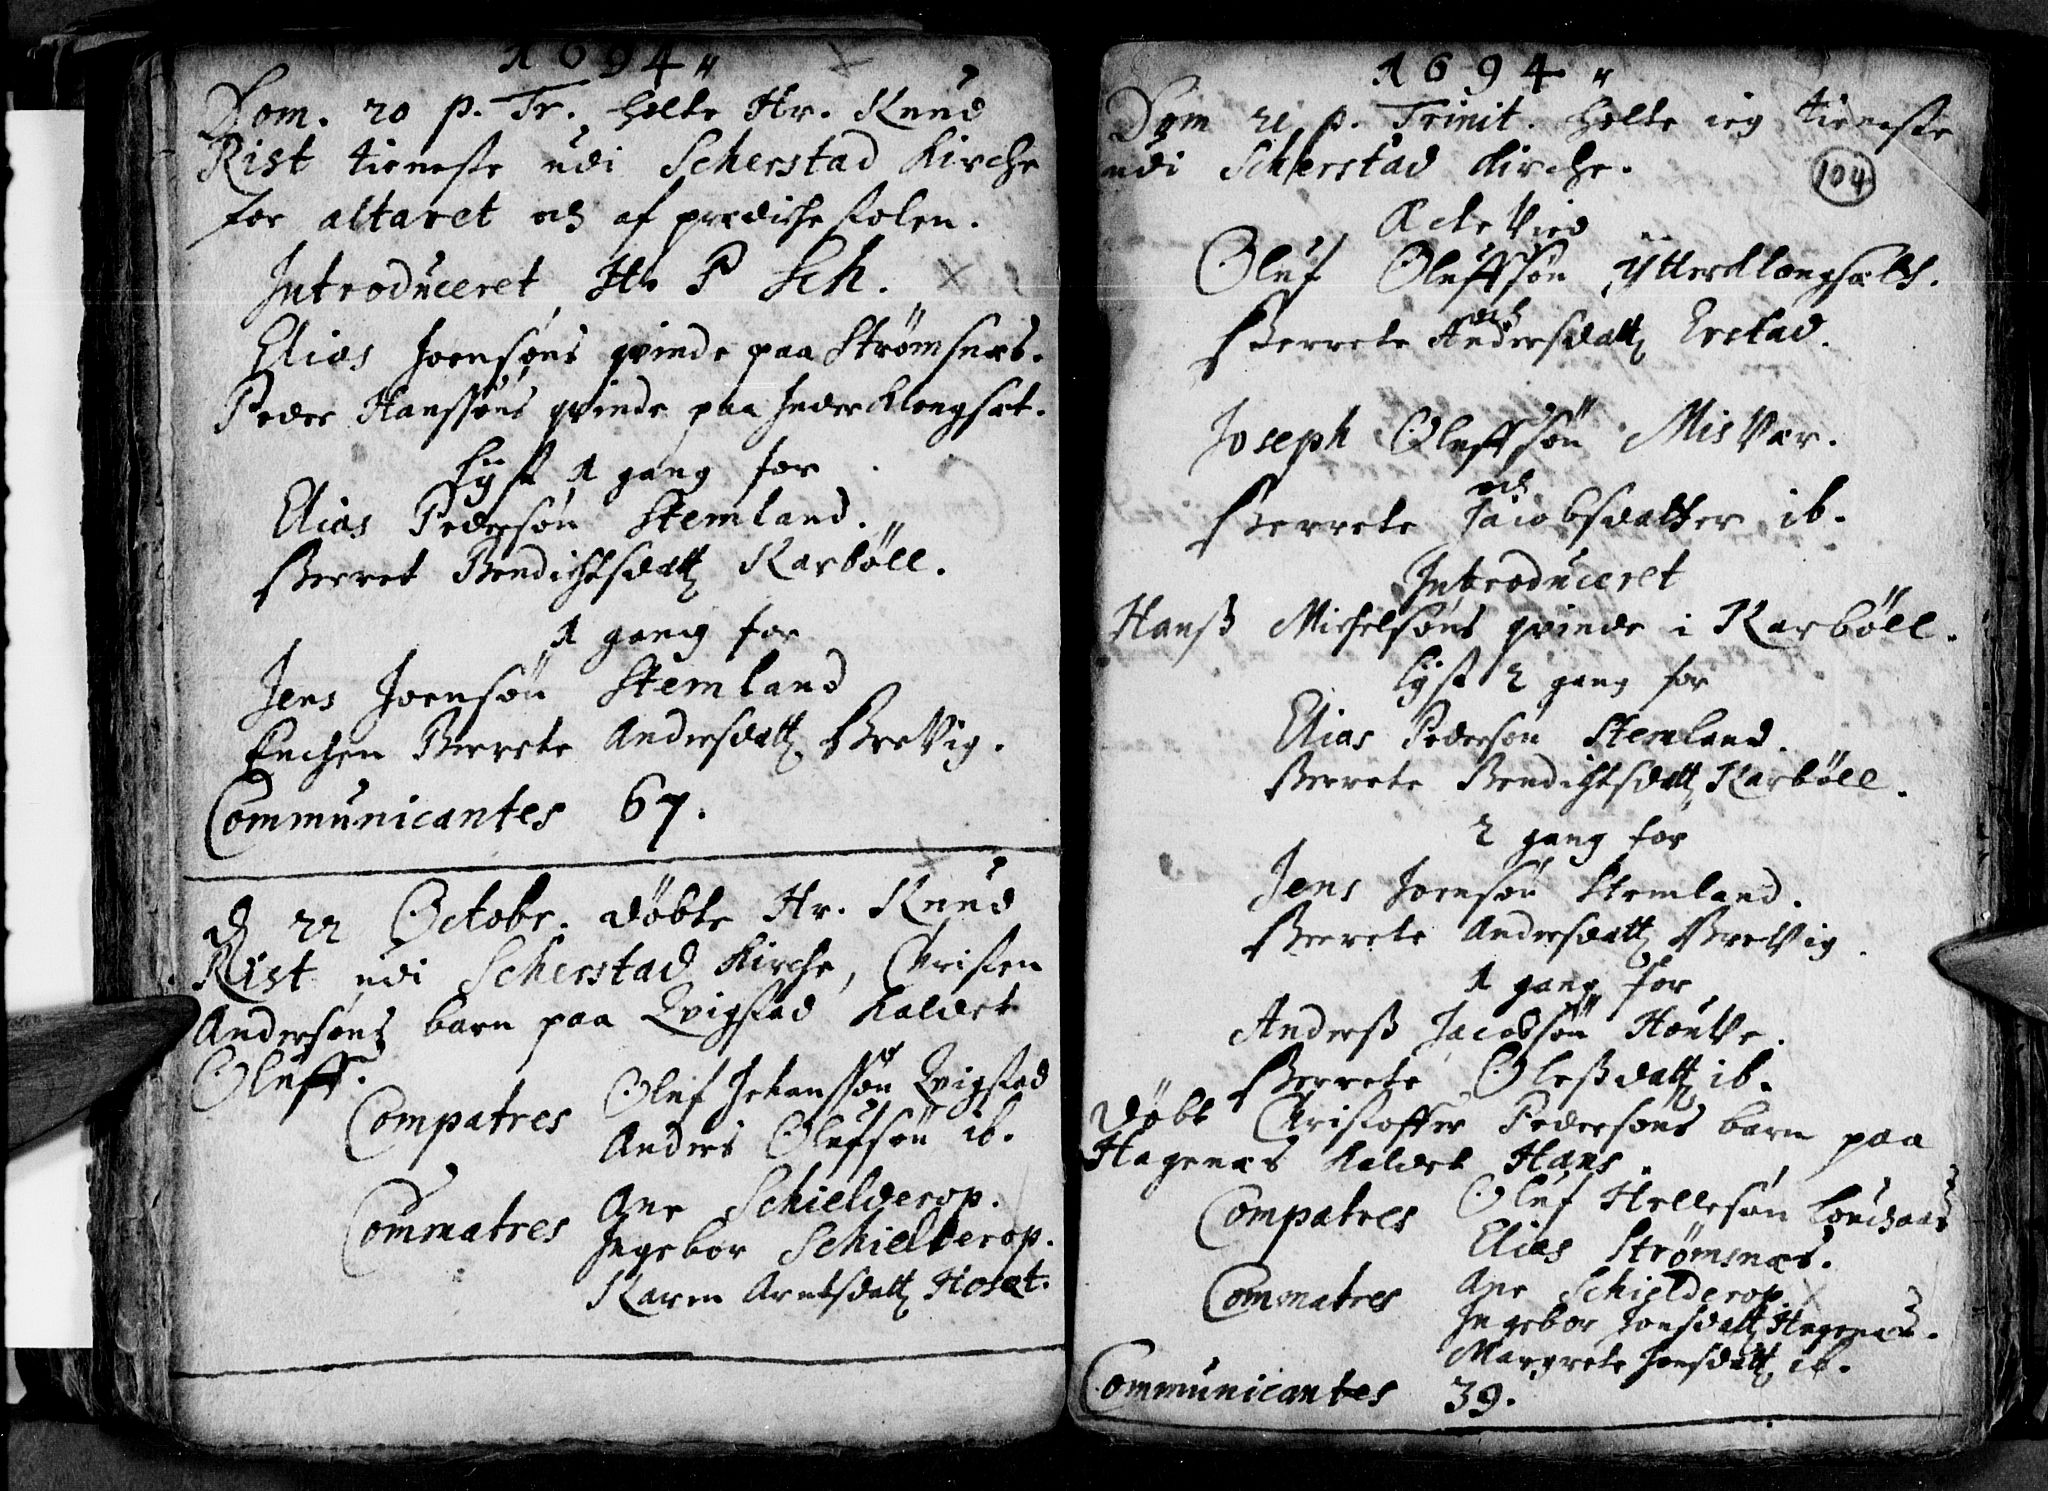 1694
Dom. 20 p. Tr. holte Hr. Knud
Rist tieneste udi Scherstad Kirche
for altaret och af prædichestolen.
Introduceret Hr P Sch.
Elias Joensøns qvinde paa Strømsnæs.
Peder Hanssøns qvinde paa Inderklongset.
lijst 1 gang for
Elias Pedersøn Stemland.
Berret Bendichtsdatt Karbøll.
1 gang for
Jens Joensøn Stemland
Enchen Berrete Andersdatt BreVig.
Communicantes 67.
d 22 Octobr. døbte Hr. Knud
Rist udi Scherstad Kirche, Christen
Andersøns barn paa Qvigstad kaldet
Oluff.
Compatres Oluf Johanssøn Qvigstad
Anders Olufsøn ib.
Commatres Ane Schielderop.
Ingebor Schielderop.
Karen Arntsdatt Hoset.
1694
Dom 21 p. Trinit. holte ieg tieneste
udi Scherstad Kirche.
104
Ecte Vied
Oluf Oluffsøn Ytterklongsæth.
och
Berrete Andersdatt Erstad.
Joseph Oluffsøn MisVær.
och
Berrete Jacobsdatter ib.
Introduceret
Hanss Michelsøns qvinde i Karbøll.
lijst 2 gang for
Elias Pedersøn Stemland.
Berrete Bendichtsdatt Karbøll.
2 gang for
Jens Joensøn Stemland.
Berrete Andersdatt BreVig.
1 gang for
Anderss Jacobsøn HouVe.
Berrete Olessdatt ib.
Døbt Christoffer Pedersøns barn paa
Hagenæs kaldet Hans.
Compatres Oluf Hellesøn
Elias Strømsnæs.
Commatres Ane Schielderop
Ingebor Jonsdatt Hagenæs.
Margrete Jonsdatt ib.
Communicantes 39.